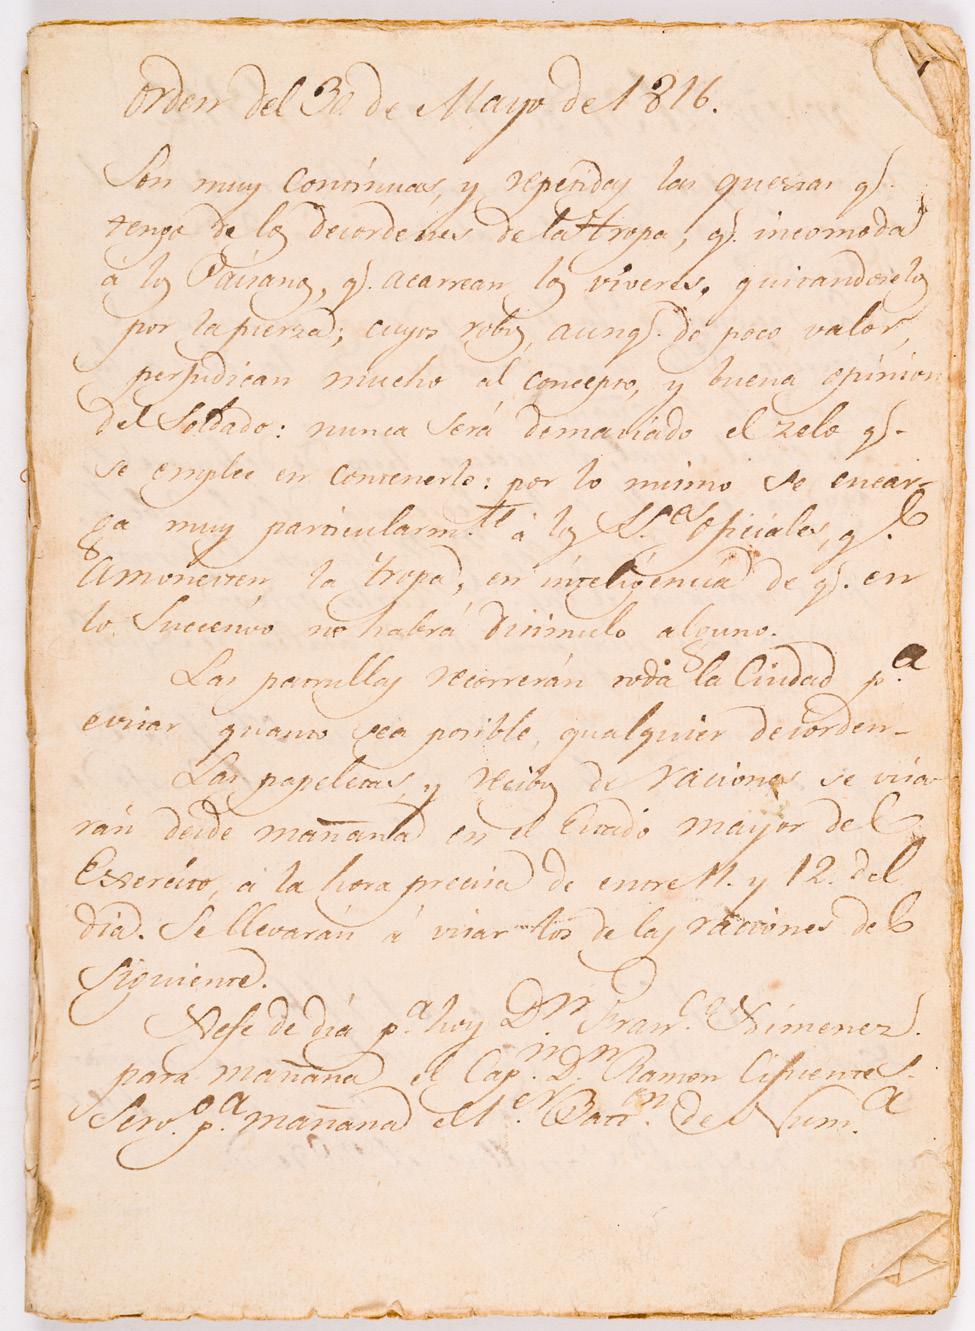 Orden del 30 de Mayo de 1816.
Son muy continuas, y repetidas las quexas q.
tengo de los desordenes de la tropa, q. incomoda
á los Paisanos, q. acarrean los viveres, quitandoselos
por la fuerza; cuyos robos, aunq. de poco valor,
perjudican mucho al concepto, y buena opinion
del Soldado: nunca será demasiado el zelo q.
se emplee en contenerlo: por lo mismo se encar-
ga muy particularm.te á los S.res Oficiales, q.e
Amonesten la tropa, en inteligencia de q. en
lo Succesivo no habrá disimulo alguno.
Las patrullas recorrerán toda la Ciudad p.a
evitar quanto sea posible, qualquier desorden-
Las papeletas, y recibos de raciones se visa-
rán desde mañana en el Estado mayor del
Exercito, á la hora precisa de entre 11. y 12. del
dia. Se llevarán á visar los de las raciones del
siguiente.
Xefe de dia p.a hoy D.n Fran.co Ximenez.
para mañana el Cap.n D.n Ramon Cifuentes.
Serv.o p.a mañana el 1.er Bat.on de Num.a